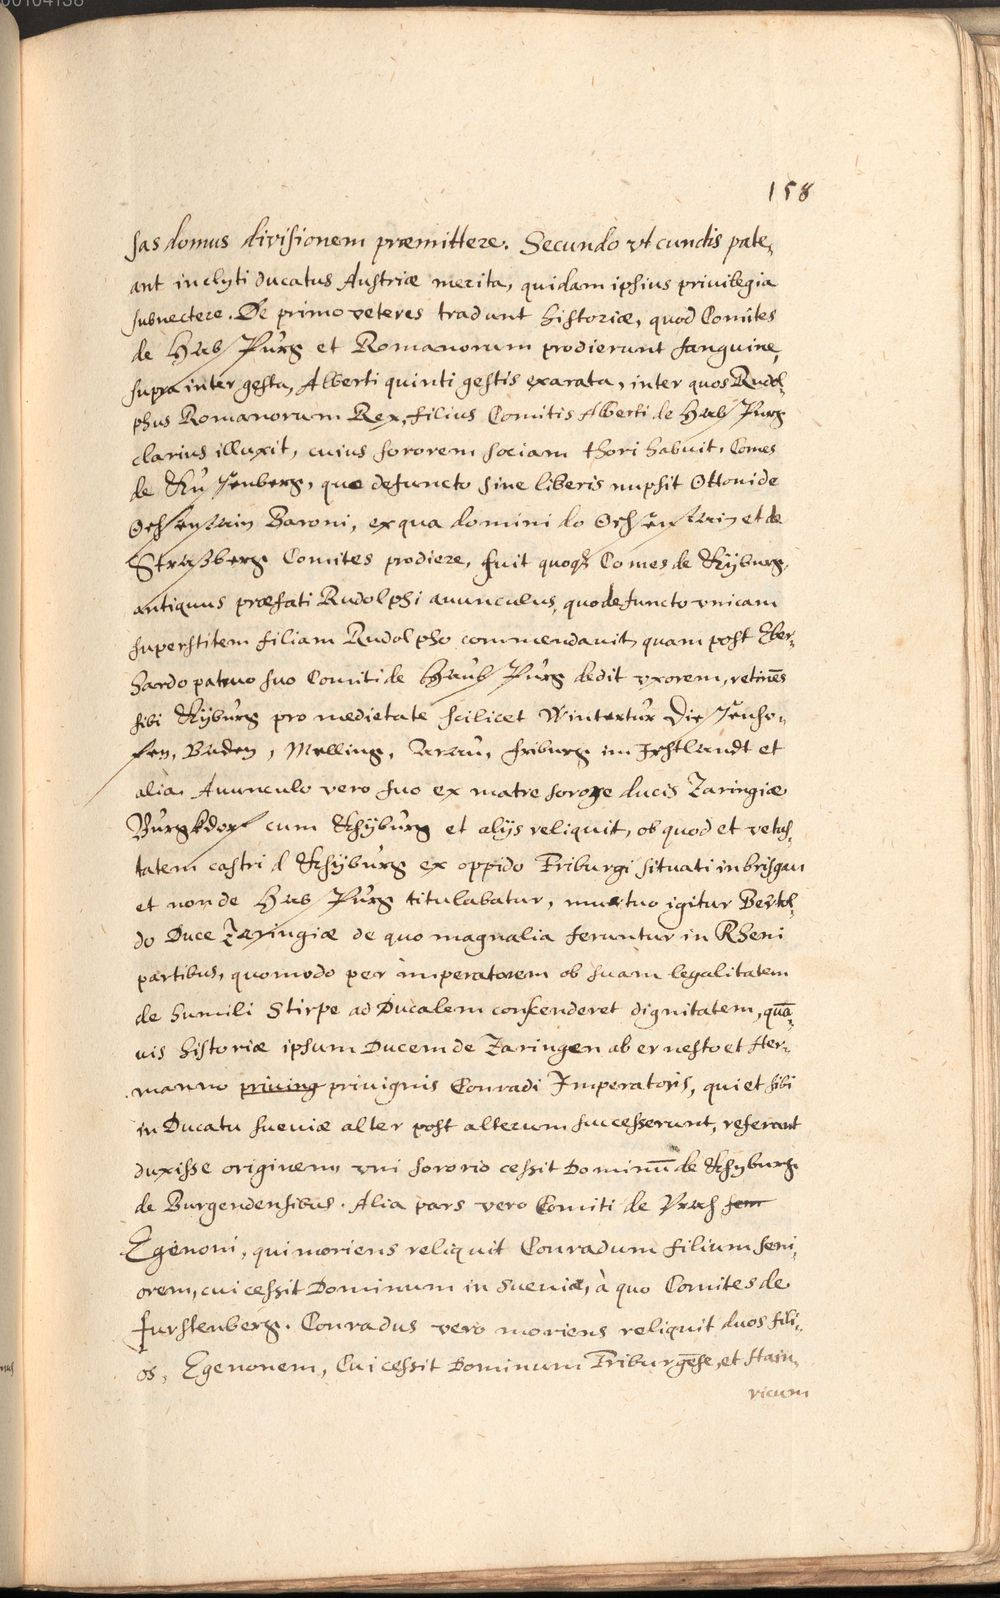 00104138
158
sas domus divisionem præmittere. Secundo vt cunctis pate,
ant inclyti ducatus Austriæ merita, quidam ipsius privilegia
subnectere. De primo veteres tradunt historiæ, quod Comites
de Habspurg et Romanorum prodierunt sanguine,
supra inter gesta, Alberti quinti gestis exarata, inter quos Rudol-
phus Romanorum Rex, filius Comitis Alberti de Habspurg
clarius illuxit, cuius sororem sociam thori habuit, Comes
de Kussenberg, quæ defuncto sine liberis nupsit Ottoni de
Ochsenstain Baroni, ex qua domini do Ochsenstain et de
Straßberg Comites prodiere, fuit quoq3 Comes de Kyburg,
antiquus præfati Rudolphi auunculus, quo defuncto vnicam
superstitem filiam Rudolpho commendauit, quam post Eber-
hardo patruo suo Comiti de Haubspurg dedit vxorem, retinēs
sibi Kyburg pro medietate scilicet Wintertur Diessenho-
fen, Baden, Melling, Arau, friburg im Jchtlandt et
alia. Auunculo vero suo ex matre sorore ducis Zaringiæ
Burgkdorf cum Khyburg et alijs reliquit, ob quod et vetus-
tatem castri d Khyburg ex oppido Friburgi situati in brisgau
et non de Habspurg titulabatur, mortuo igitur Bertol-
do Duce Zaringiæ de quo magnalia feruntur in Rheni
partibus, quomodo per imperatorem ob suam legalitatem
de humili Stirpe ad Ducalem conscenderet dignitatem, quā-
uis historiæ ipsum Ducem de Zaringen ab ernesto et Her-
manno priuing priuignis Conradi Imperatoris, qui et sibi
in Ducatu sueuiæ alter post alterum successerunt, referant
duxisse originem, vni sororio cessit Dominū de Khyburg
de Burgendensibus. Alia pars vero Comiti de Vrach sem
Egenoni, qui moriens reliquit Conradum filium seni-
orem, cui cessit Dominum in Sueuia, à quo Comites de
furstenberg. Conradus vero moriens reliquit duos fili-
os, Egenonem, Cui cessit Dominum Friburgēse, et Hain-
ricum